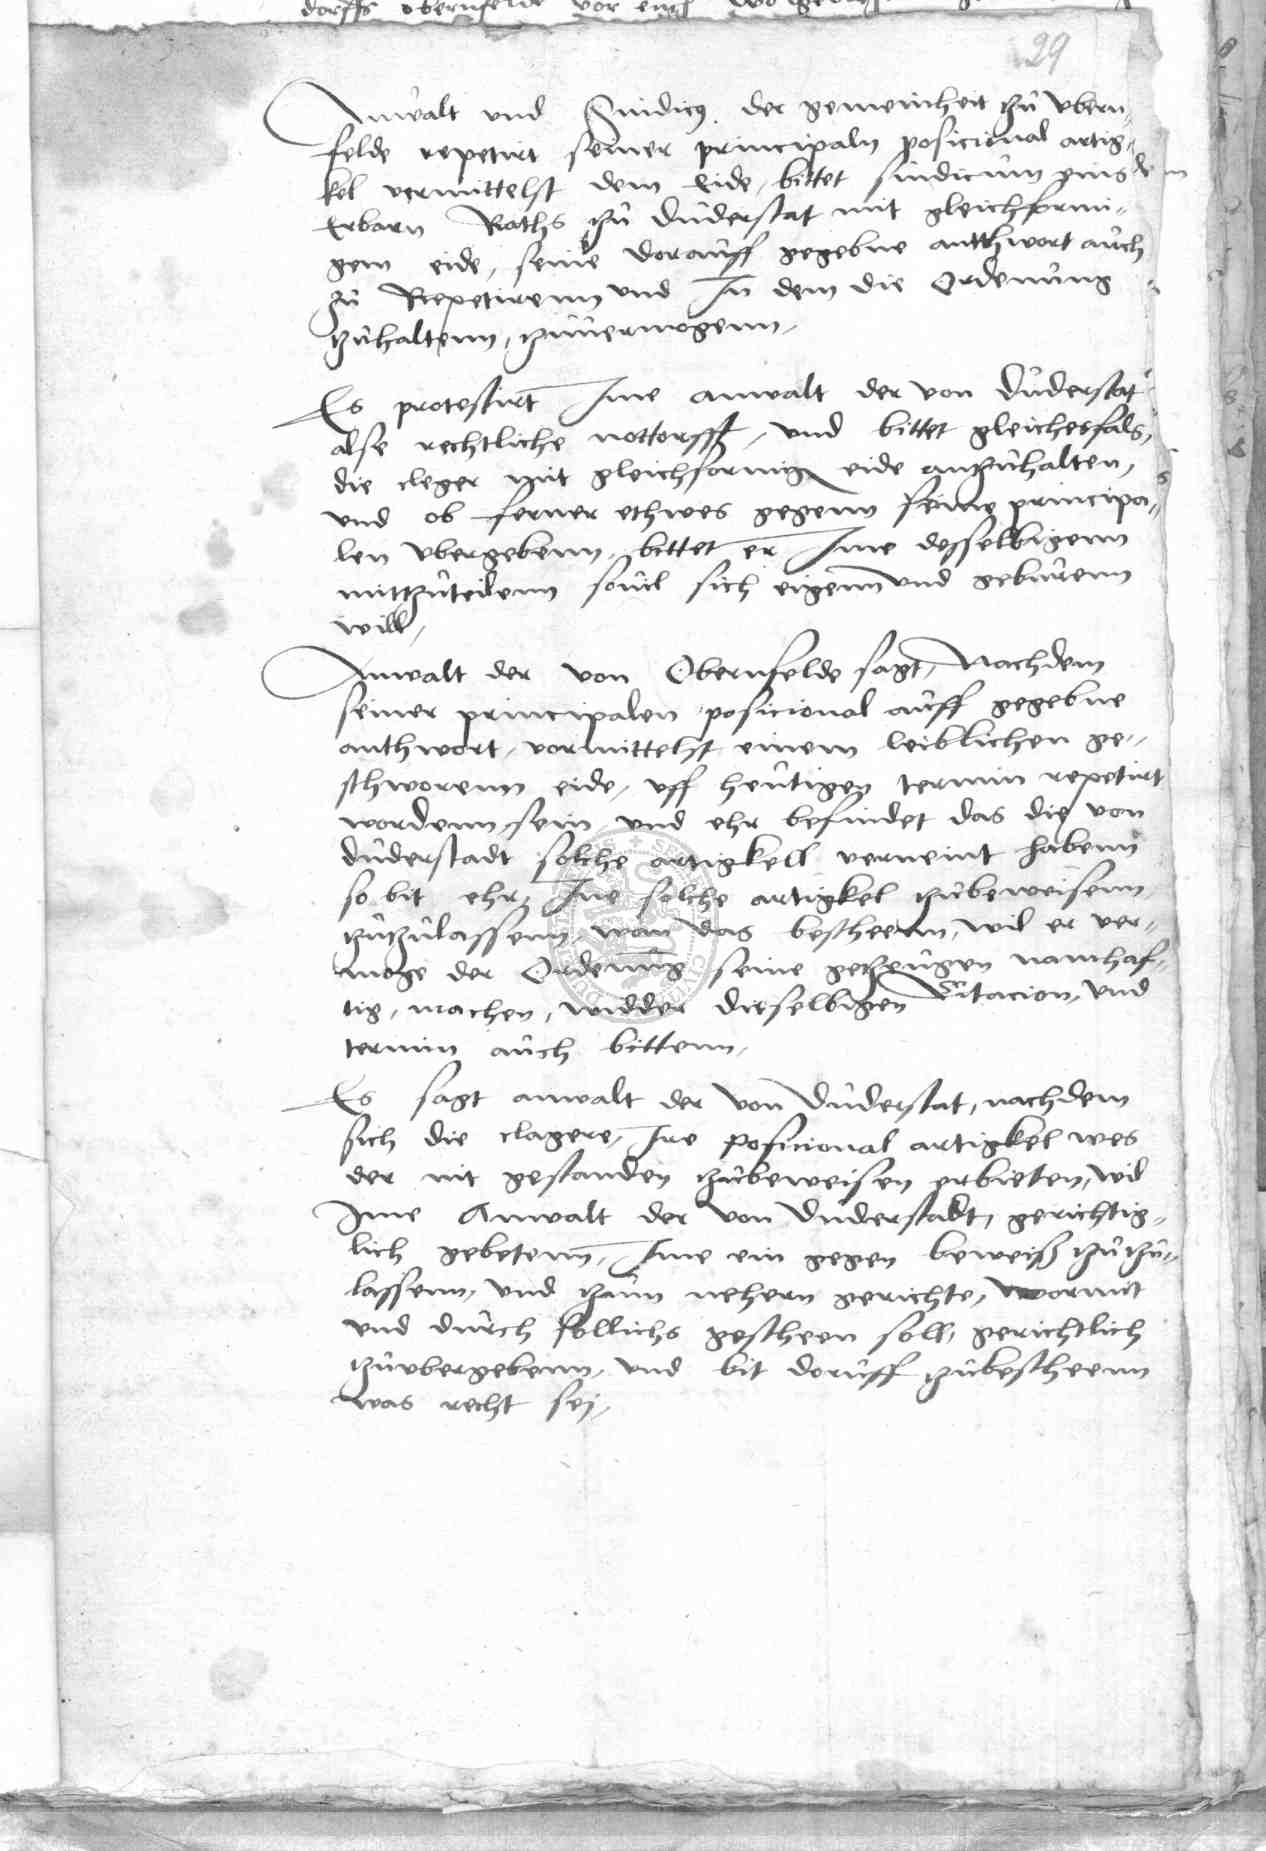 dorffs obernfelde vor ein
29
Anwalt vnd Sindicus der gemeinheit zu Obern
felde repetirt seiner principaln posicional artig=
kel vermittelst dem Eide, bittet sindicum eins
Erbarn Raths zu Duderstat mit gleichformi=
gem eide, seine dorauff gegebne antthwort auch
zu Repetirenn vnd In dem die Ordenung
zuhaltenn, zuuermogenn,
Es protestirt Ime anwalt der von Duderstat
alse rechtliche nottorfft, vnd bittet gleichesfals,
die cleger mit gleichformig eide anzuhalten,
vnd ob ferner ethwes gegenn seine principa=
len vbergebenn, bittet er Ime desselbigenn
mittzuteilenn souil sich eigent vnd geburenn
will,
Anwalt der von Obernfelde sagt, Nachdem
seiner principalen posicional auff gegebne
anthwort, vormittelst einem leiblichen ge=
schworenn eide, vff heutigen termin repetirt
wordenn sein vnd ehr befindet das die von
duderstadt solche artigkell verneint habenn
so bit ehr, Ine solche artigkel zubeweisenn
zuzulassenn, wan das bescheen, wil er ver=
moge der Ordenung seine gezeugen namhaf=
tig, machen, widder dieselbigen Citacion, vnd
termin auch bittenn,
Es sagt anwalt der von Duderstat, nachdem
sich die clagere, Ire posicional artigkel wes
der nit gestanden zubeweisen erbieten, wil
Ime Anwalt der von Duderstadt, gerichtig=
lich gebetenn, Ime ein gegen beweiß zuzu=
lassenn, vnd zum nehern gerichte, wormit
vnd durch sollichs gescheen soll, gerichtlich
zuvbergebenn, vnd bit doruff zubescheenn
was recht sej,